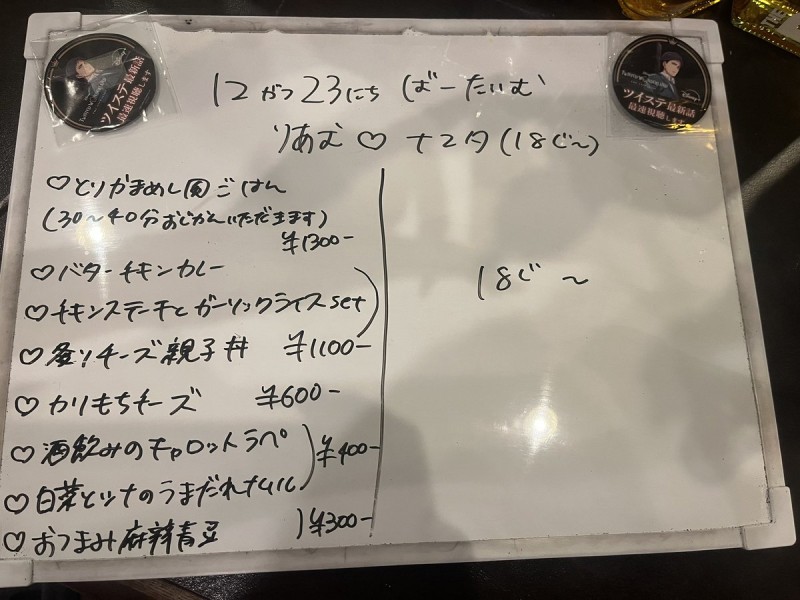 12がつ23にち ばーたいむ
りあむ♡ ナユタ(18じ〜)
♡とりかまめし風ごはん
(30〜40分おじかんいただきます)
¥1300-
♡バターチキンカレー
♡チキンステーキとガーリックライスset
♡釜玉チーズ親子丼 ¥1100-
♡カリもちチーズ ¥600-
♡酒飲みのキャロットラペ
¥400-
♡白菜とツナのうまだれナムル
♡おつまみ麻辣青豆 ¥300-
18じ〜
ツイステ最新話
最速視聴します
ツイステ最新話
最速視聴します
Disney+